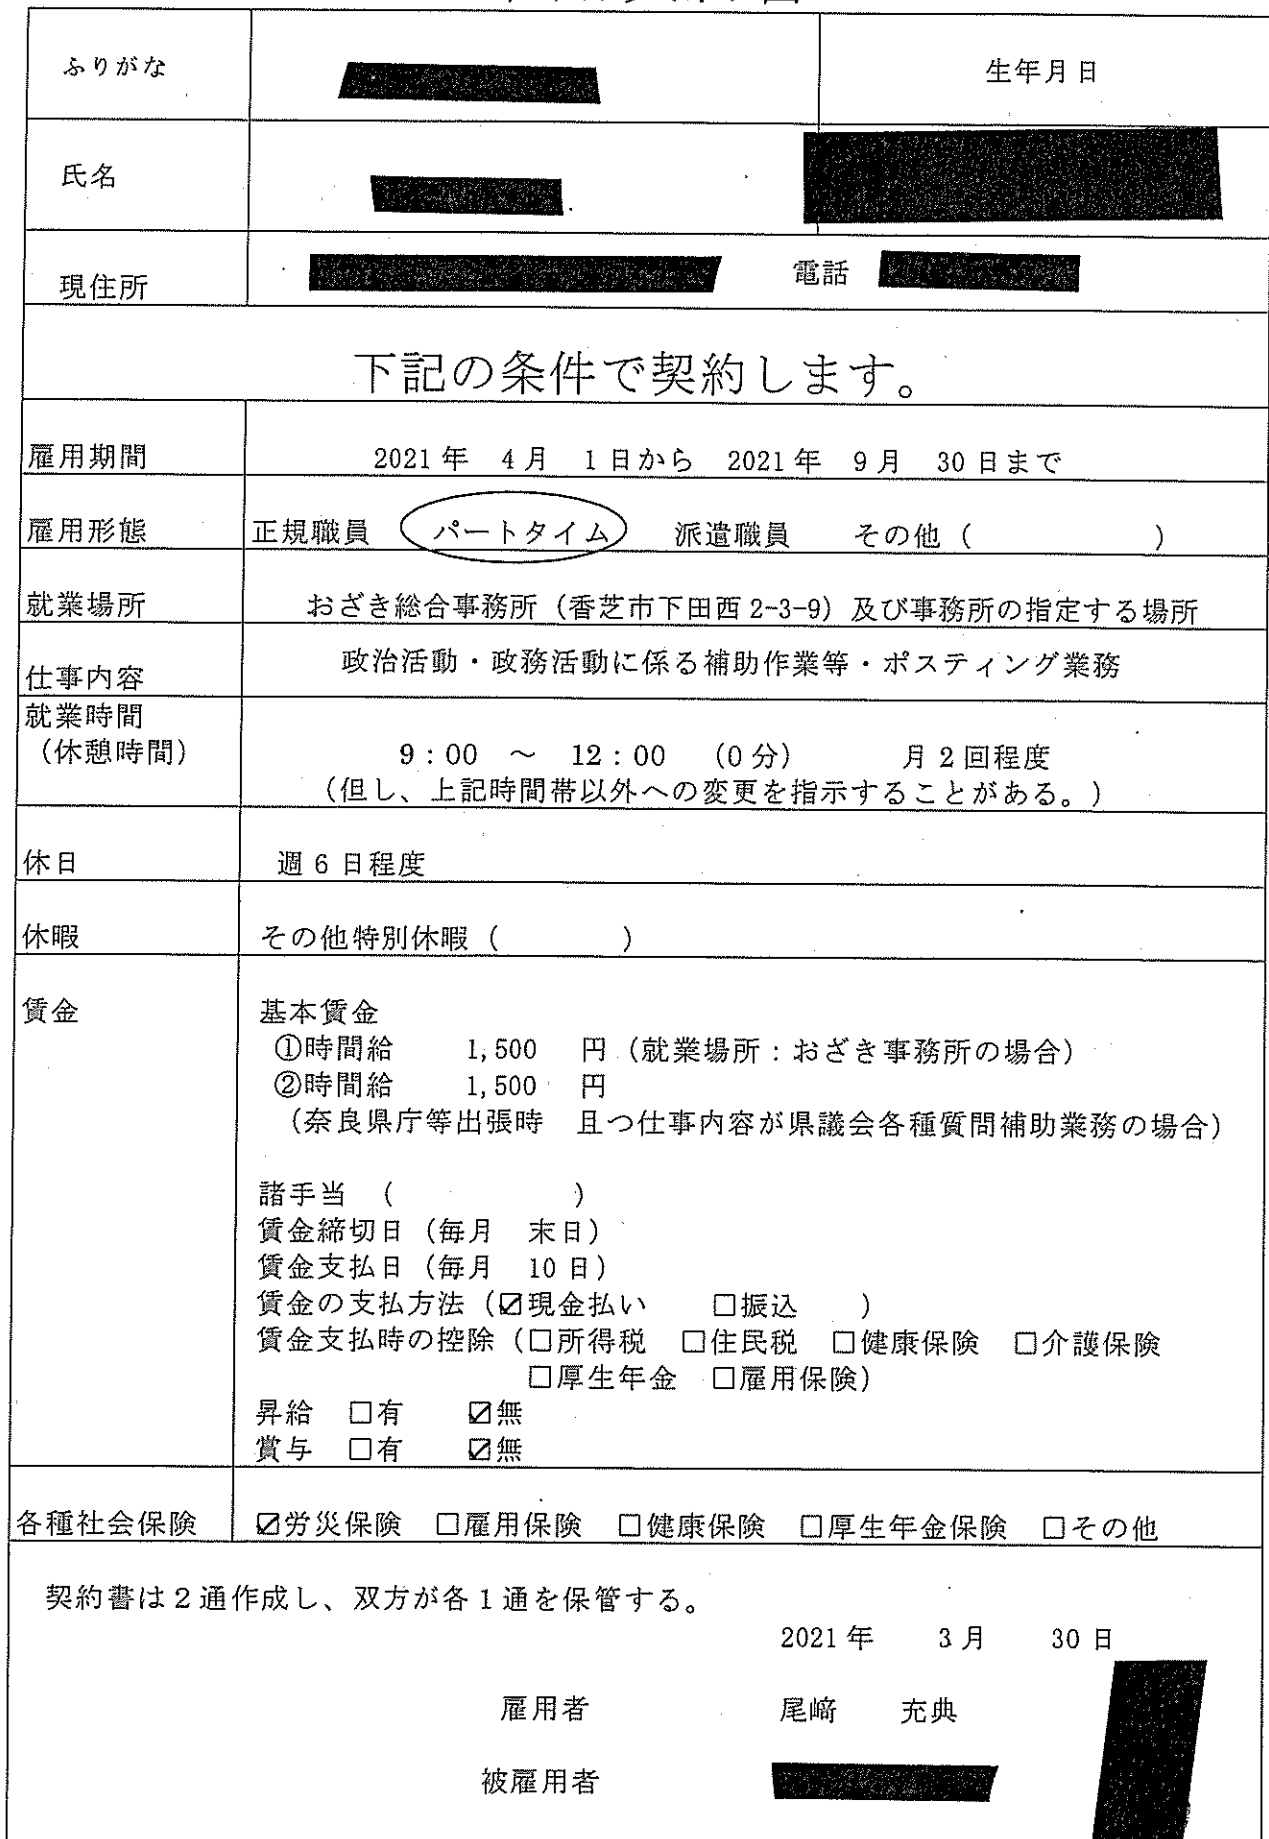 ふりがな
生年月日
氏名
現住所
電話
下記の条件で契約します。
雇用期間
2021年 4月 1日から 2021年 9月 30日まで
雇用形態
正規職員 パートタイム 派遣職員 その他 ( )
就業場所
おざき総合事務所 (香芝市下田西 2-3-9) 及び事務所の指定する場所
仕事内容
政治活動・政務活動に係る補助作業等・ポスティング業務
就業時間
(休憩時間)
9:00 ~ 12:00 (0分) 月2回程度
(但し、上記時間帯以外への変更を指示することがある。)
休日
週6日程度
休暇
その他特別休暇 ( )
賃金
基本賃金
①時間給 1,500 円 (就業場所:おざき事務所の場合)
②時間給 1,500 円
(奈良県庁等出張時 且つ仕事内容が県議会各種質問補助業務の場合)
諸手当 ( )
賃金締切日 (毎月 末日)
賃金支払日 (毎月 10日)
賃金の支払方法 (☑現金払い □振込 )
賃金支払時の控除 (□所得税 □住民税 □健康保険 □介護保険
□厚生年金 □雇用保険)
昇給 □有 ☑無
賞与 □有 ☑無
各種社会保険
☑労災保険 □雇用保険 □健康保険 □厚生年金保険 □その他
契約書は2通作成し、双方が各1通を保管する。
2021年 3月 30日
雇用者 尾﨑 充典
被雇用者